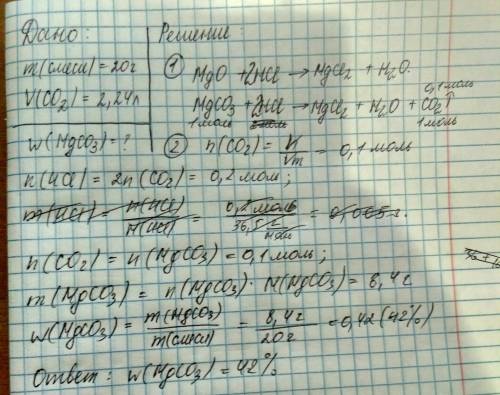 Дано:
m(смеси)=20г
V(CO₂)=2,24л
w(MgCO₃)=?
Решение:
① MgO + 2HCl → MgCl₂ + H₂O.
0,1моль
MgCO₃ + 2HCl → MgCl₂ + H₂O + CO₂↑
1моль 2моль 1моль
② n(CO₂) = V/Vm = 0,1моль
n(HCl) = 2n(CO₂) = 0,2моль;
m(HCl) = n(HCl)/M(HCl) = 0,2моль/36,5 г/моль = 0,005г.
n(CO₂) = n(MgCO₃) = 0,1моль;
m(MgCO₃) = n(MgCO₃) · M(MgCO₃) = 8,4г
w(MgCO₃) = m(MgCO₃)/m(смеси) = 8,4г/20г = 0,42 (42%)
Ответ: w(MgCO₃) = 42%